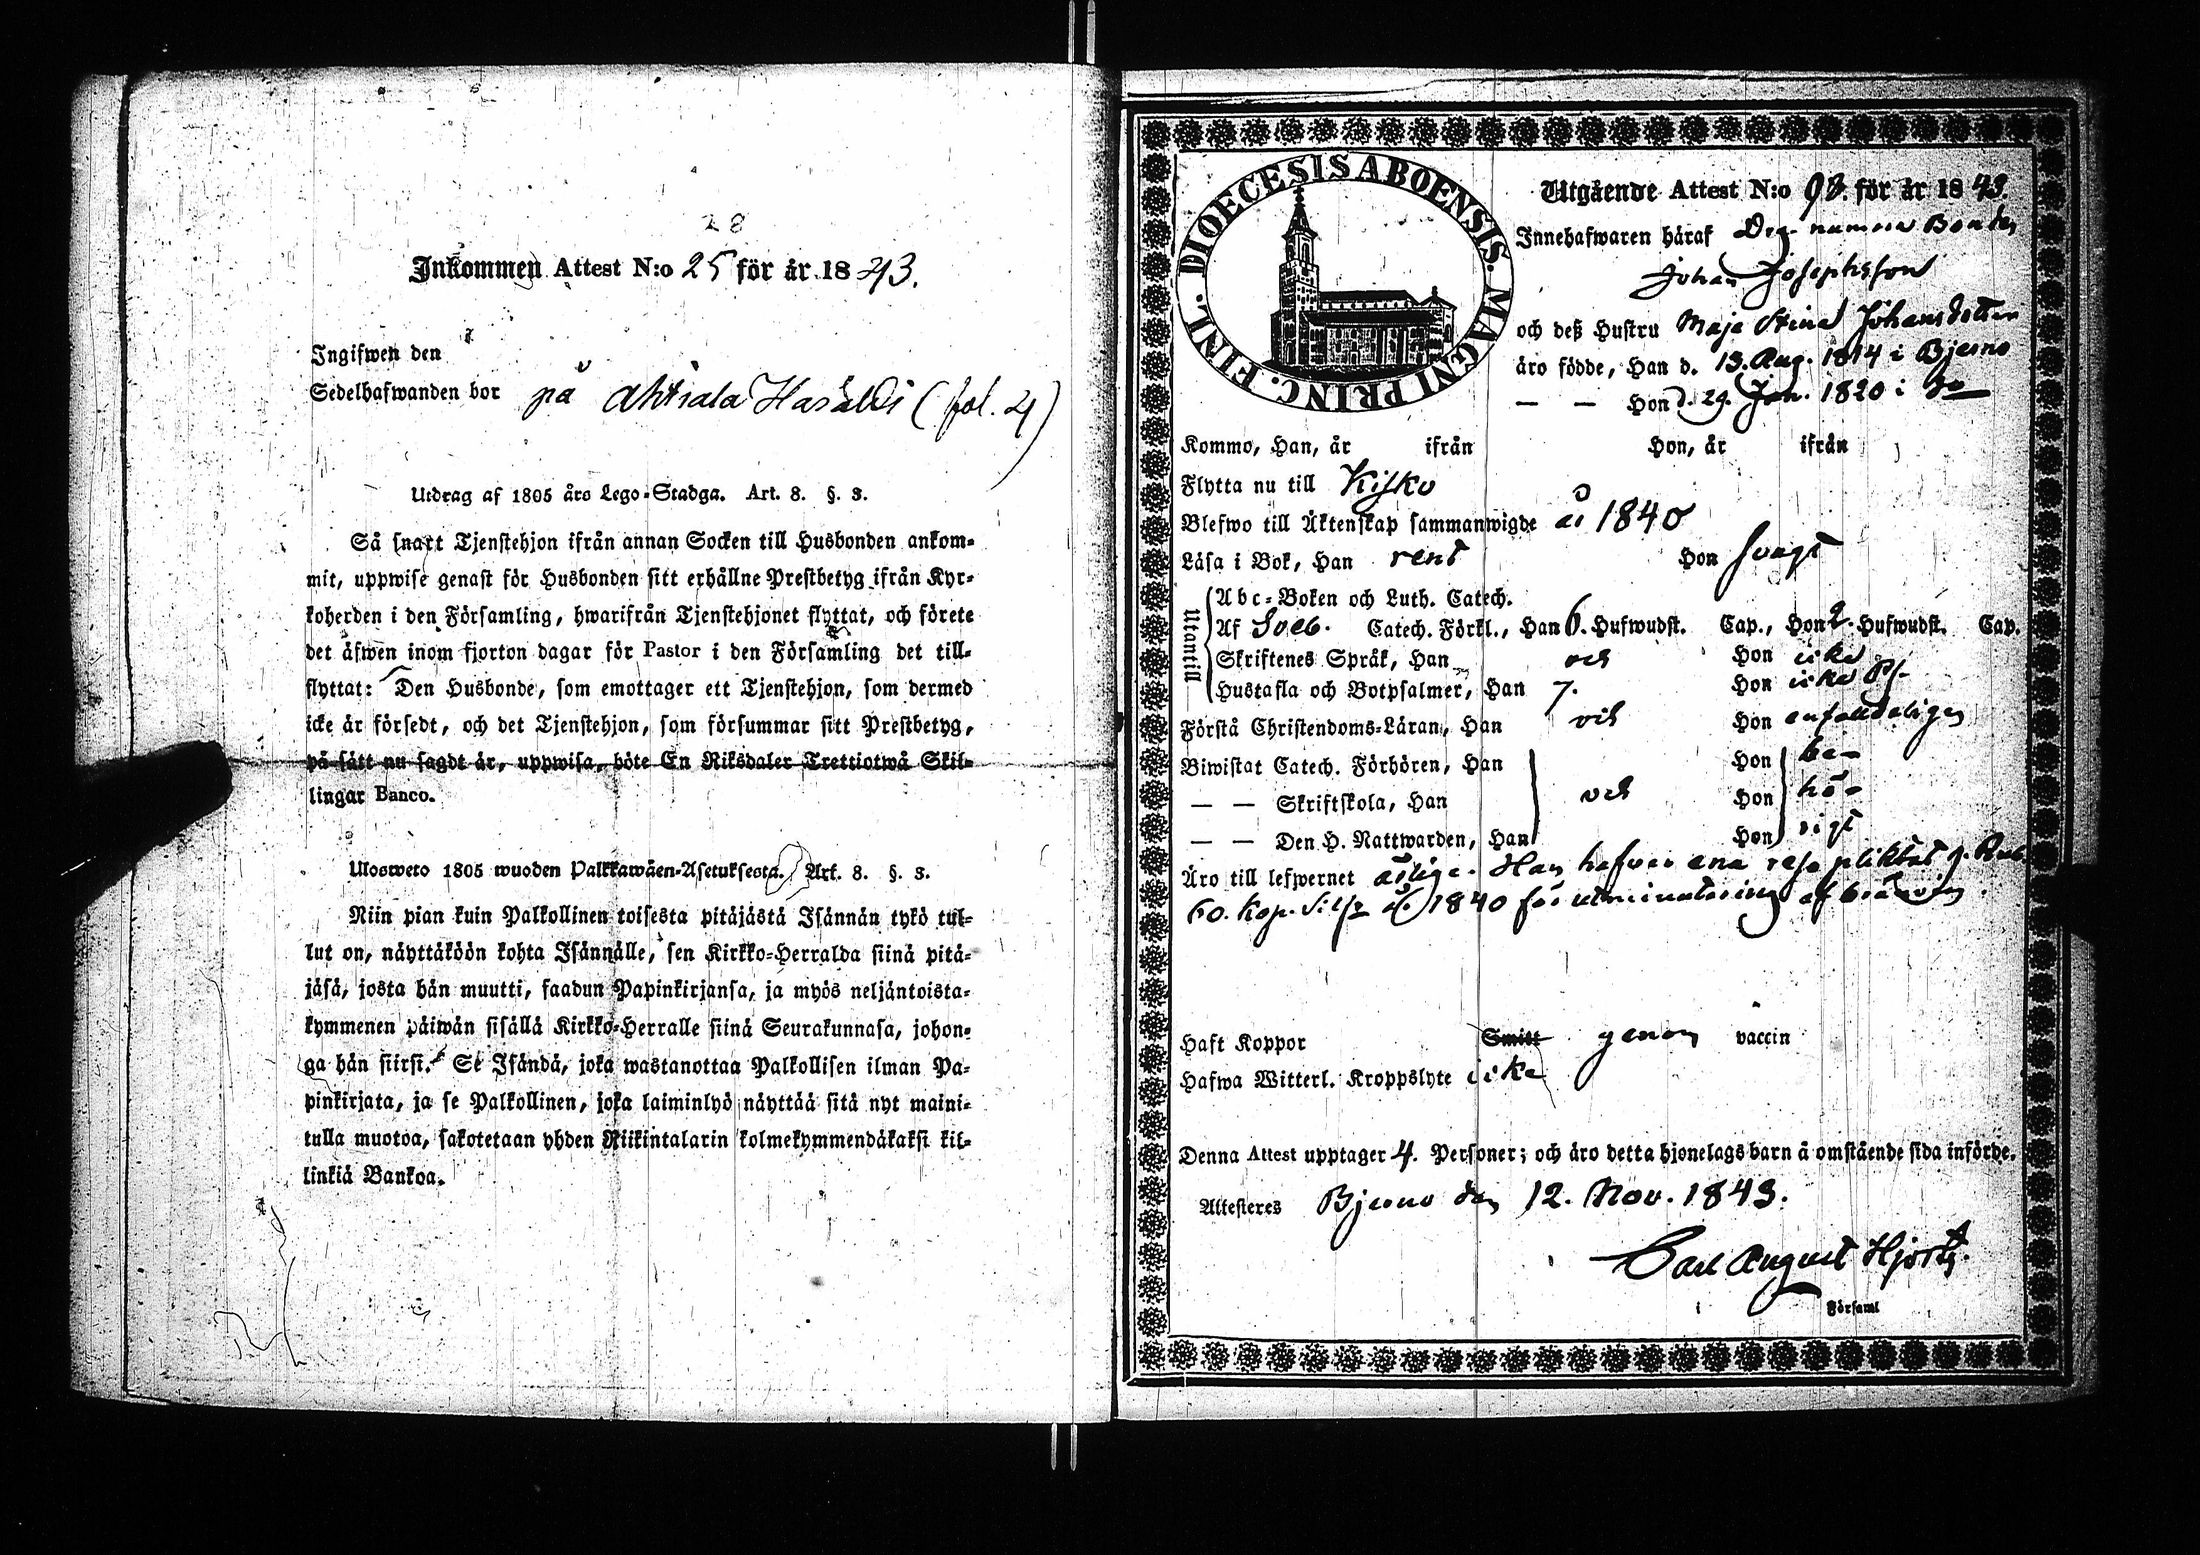 28
Inkommen Attest N:o 25 för år 1843.
Ingifwen den
Sedelhafwanden bor på Ahtiala Haräldi (fol. 4)
Utdrag af 1805 års Lego-Stadga. Art. 8. §. 3.
Så snart Tjenstehjon ifrån annan Socken till Husbonden ankom-
mit, uppwise genast för Husbonden sitt erhållne Prestbetyg ifrån Kyr-
koherden i den Församling, hwarifrån Tjenstehjonet flyttat, och förete
det äfwen inom fjorton dagar för Pastor i den Församling det till-
flyttat: Den Husbonde, som emottager ett Tjenstehjon, som dermed
icke är försedt, och det Tjenstehjon, som försummar sitt Prestbetyg,
på sätt nu sagdt är, uppwisa, böte En Riksdaler Trettiotwå Skil-
lingar Banco.
Ulosweto 1805 wuoden Palkkawäen-Asetuksesta. Art. 8. §. 3.
Niin pian kuin Palkollinen toisesta pitäjästä Isännän tykö tul-
lut on, näyttäköön kohta Isännälle, sen Kirkko-Herralda siinä pitä-
jäsä, josta hän muutti, saadun Papinkirjansa, ja myös neljäntoista-
kymmenen päiwän sisällä Kirkko-Herralle siinä Seurakunnasa, johon-
ga hän siirsi. Se Isändä, joka wastanottaa Palkollisen ilman Pa-
pinkirjata, ja se Palkollinen, joka laiminlyö näyttää sitä nyt maini-
tulla muotoa, sakotetaan yhden Riikintalarin kolmekymmendäkaksi kil-
linkiä Bankoa.
DIOECESIS ABOENSIS. MAGNI PRINC. FINL.
Utgående Attest N:o 93. för år 1843.
Innehafwaren häraf Bonden
Johan Josephsson
och deß Hustru Maja Stina Johansdotter
äro födde, Han d. 13. Aug. 1814 i Bjerno
— — Hon d. 29. Jan. 1820 i Do
Kommo, Han, år ifrån Hon, år ifrån
Flytta nu till Kisko
Blefwo till Äktenskap sammanwigde år 1840
Läsa i Bok, Han rent Hon svagt
Utantill
Abc-Boken och Luth. Catech.
Af Sveb. Catech. Förkl., Han 6. Hufwudst. Cap., Hon 2. Hufwudst. Cap.
Skriftenes Språk, Han och Hon icke
Hustafla och Botpsalmer, Han 7. Hon icke Ps.
Förstå Christendoms-Läran, Han Hon enfalldeligen
Biwistat Catech. Förhören, Han Hon be-
— — Skriftskola, Han och Hon hö-
— — Den H. Nattwarden, Han Hon rigt
Äro till lefwernet ärlige. Han hafver ena resa pliktat 9. Rub.
60. Kop. Silfr år 1840 för utminutering af bränvin.
Haft Koppor Smitt genom vaccin
Hafwa Witterl. Kroppslyte icke
Denna Attest upptager 4. Personer; och äro detta hjonelags barn å omstående sida införde.
Attesteres Bjerno den 12. Nov. 1843.
Carl August Hjorth.
i Församl